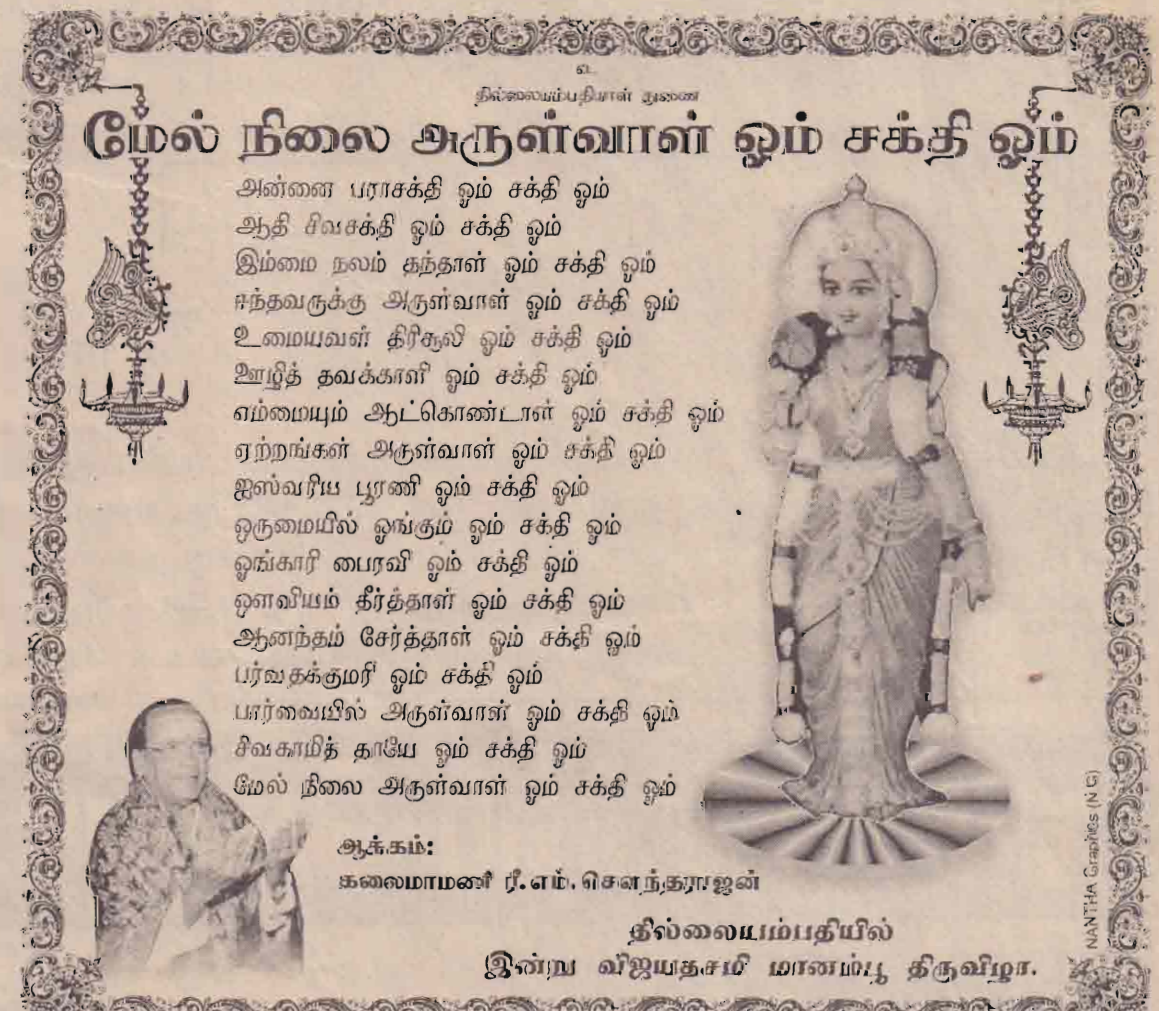 உ
தில்லையம்பதியாள் துணை
மேல் நிலை அருள்வாள் ஓம் சக்தி ஓம்
அன்னை பராசக்தி ஓம் சக்தி ஓம்
ஆதி சிவசக்தி ஓம் சக்தி ஓம்
இம்மை நலம் தந்தாள் ஓம் சக்தி ஓம்
ஈந்தவருக்கு அருள்வாள் ஓம் சக்தி ஓம்
உமையவள் திரிசூலி ஓம் சக்தி ஓம்
ஊழித் தவக்காளி ஓம் சக்தி ஓம்
எம்மையும் ஆட்கொண்டாள் ஓம் சக்தி ஓம்
ஏற்றங்கள் அருள்வாள் ஓம் சக்தி ஓம்
ஐஸ்வரிய பூரணி ஓம் சக்தி ஓம்
ஒருமையில் ஓங்கும் ஓம் சக்தி ஓம்
ஓங்காரி பைரவி ஓம் சக்தி ஓம்
ஔவியம் தீர்த்தாள் ஓம் சக்தி ஓம்
ஆனந்தம் சேர்த்தாள் ஓம் சக்தி ஓம்
பர்வதக்குமரி ஓம் சக்தி ஓம்
பார்வையில் அருள்வாள் ஓம் சக்தி ஓம்
சிவகாமித் தாயே ஓம் சக்தி ஓம்
மேல் நிலை அருள்வாள் ஓம் சக்தி ஓம்
ஆக்கம்:
கலைமாமணி ரீ.எம்.சௌந்தராஜன்
தில்லையம்பதியில்
இன்று விஜயதசமி மானம்பூ திருவிழா.
NANTHA Graphics (N G)